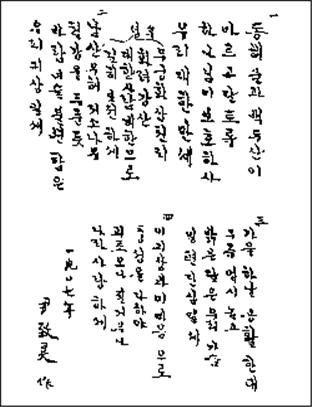 一
동해물과 백두산이
마르고 달토록
하나님이 보호하사
우리 대한 만세
무궁화 삼천리
화려강산
대한사람 대한으로
길히 보전하세
二
남산 우헤 저 소나무
철갑을 두른 듯
바람 이슬 불변함은
우리 긔상일세
三
가을 하날 공활한대
구름 업시 놉고
밝은 달은 우리 가슴
일편단심일세
四
이 긔상과 이 마음으로
충성을 다하야
괴로오나 질거우나
나라 사랑하세
一九〇七年
尹致昊 作